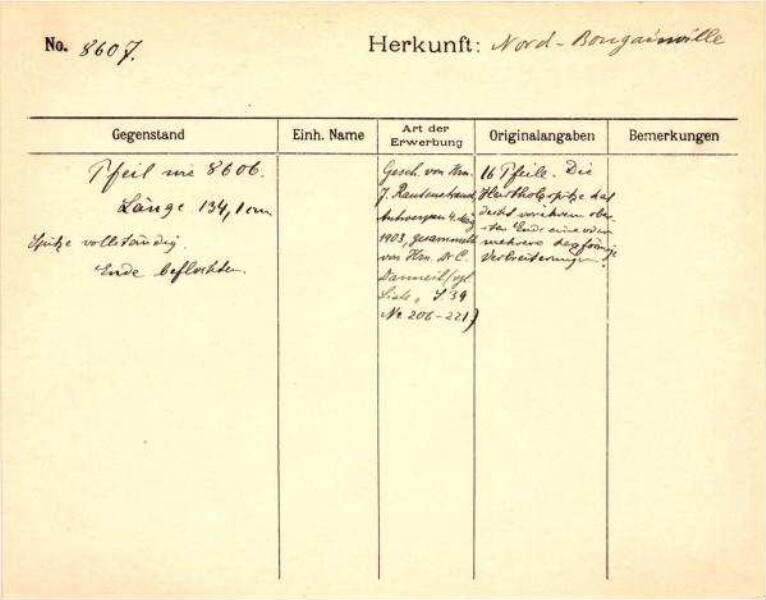 No. 8607.
Herkunft: Nord-Bougainville
Gegenstand
Einh. Name
Art der
Erwerbung
Originalangaben
Bemerkungen
Pfeil wie 8606.
Länge 134,1 cm
Spitze vollständig.
Ende beflochten.
Gesch. von Hrn.
J. Rautenstrauch,
Antwerpen 4. Mai
1903, gesammelt
von Hrn. Dr C.
Danneil (vgl
Liste, S 39
No 206-221)
16 Pfeile. Die
Hartholzspitze hat
dicht vor ihrem obe-
ren Ende eine oder
mehrere
Verbreiterungen.